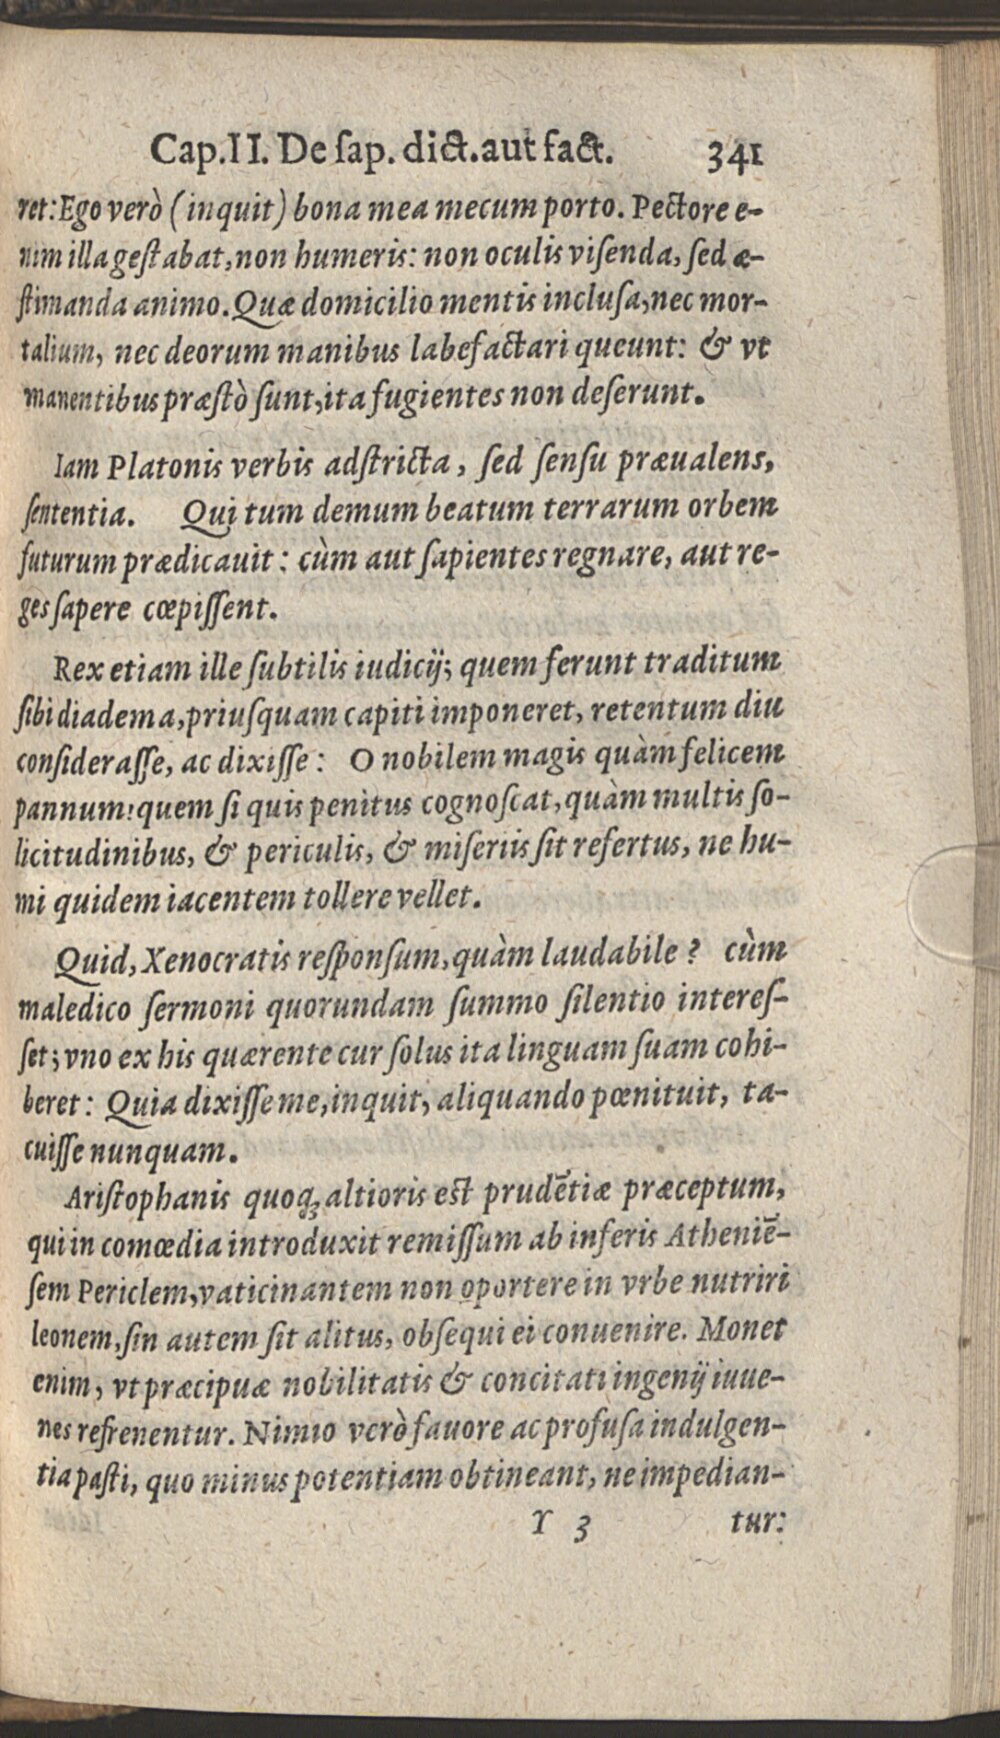 Cap.II. De ſap. dict. aut fact. 341
ret: Ego verò (inquit) bona mea mecum porto. Pectore e-
nim illa geſtabat, non humeris: non oculis viſenda, ſed æ-
ſtimanda animo. Quæ domicilio mentis incluſa, nec mor-
talium, nec deorum manibus labefactari queunt: & vt
manentibus præſtò ſunt, ita fugientes non deſerunt.
Iam Platonis verbis adſtricta, ſed ſenſu præualens,
ſententia. Qui tum demum beatum terrarum orbem
futurum prædicauit: cùm aut ſapientes regnare, aut re-
ges ſapere cœpiſſent.
Rex etiam ille ſubtilis iudicij; quem ferunt traditum
ſibi diadema, priuſquam capiti imponeret, retentum diu
conſideraſſe, ac dixiſſe: O nobilem magis quàm felicem
pannum! quem ſi quis penitus cognoſcat, quàm multis ſo-
licitudinibus, & periculis, & miſeriis ſit refertus, ne hu-
mi quidem iacentem tollere vellet.
Quid, Xenocratis reſponſum, quàm laudabile? cùm
maledico ſermoni quorundam ſummo ſilentio intereſ-
ſet; vno ex his quærente cur ſolus ita linguam ſuam cohi-
beret: Quia dixiſſe me, inquit, aliquando pœnituit, ta-
cuiſſe nunquam.
Ariſtophanis quoq; altioris eſt prudẽtiæ præceptum,
qui in comœdia introduxit remiſſum ab inferis Atheniẽ-
ſem Periclem, vaticinantem non oportere in vrbe nutriri
leonem, ſin autem ſit alitus, obſequi ei conuenire. Monet
enim, vt præcipuæ nobilitatis & concitati ingenij iuue-
nes refrenentur. Nimio verò fauore ac profuſa indulgen-
tia paſti, quo minus potentiam obtineant, ne impedian-
Y 3 tur: